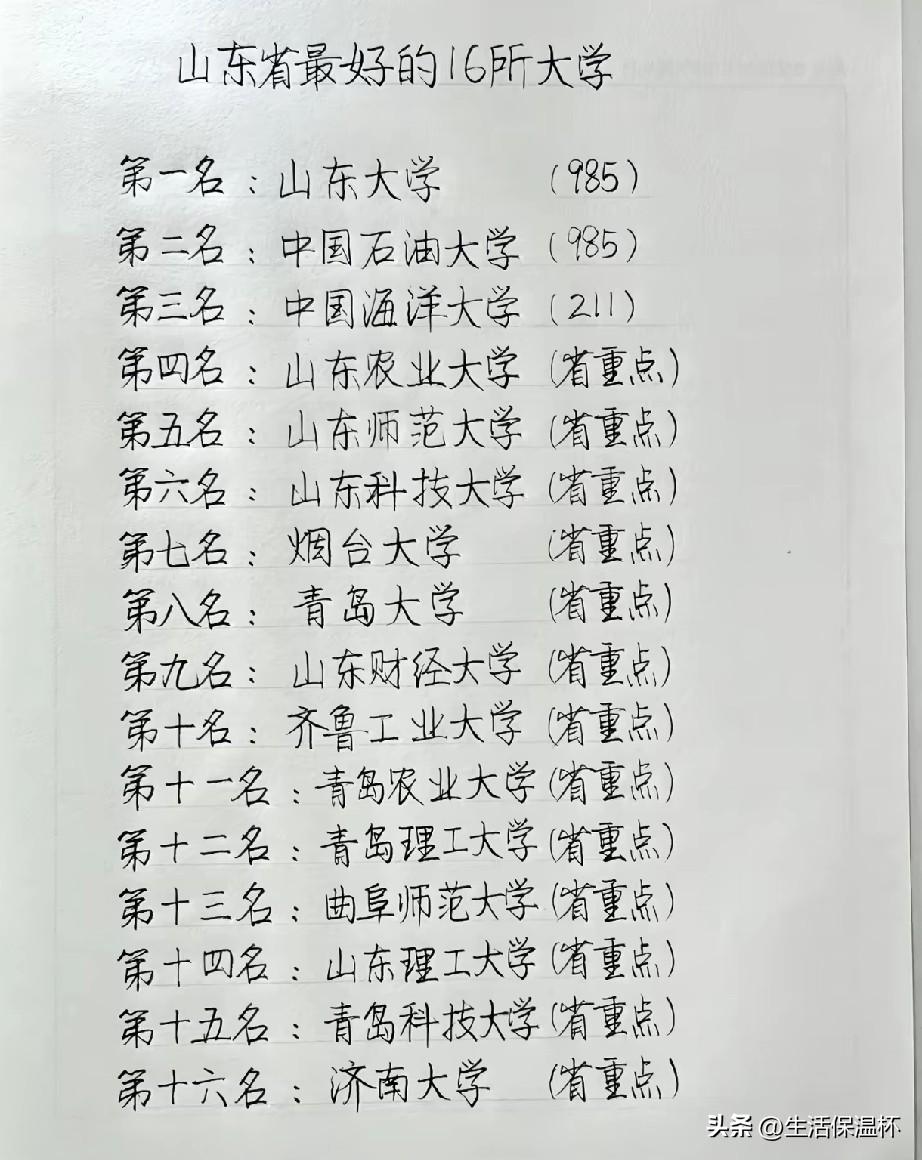 山东省最好的16所大学
第一名：山东大学 (985)
第二名：中国石油大学 (985)
第三名：中国海洋大学 (211)
第四名：山东农业大学 (省重点)
第五名：山东师范大学 (省重点)
第六名：山东科技大学 (省重点)
第七名：烟台大学 (省重点)
第八名：青岛大学 (省重点)
第九名：山东财经大学 (省重点)
第十名：齐鲁工业大学 (省重点)
第十一名：青岛农业大学 (省重点)
第十二名：青岛理工大学 (省重点)
第十三名：曲阜师范大学 (省重点)
第十四名：山东理工大学 (省重点)
第十五名：青岛科技大学 (省重点)
第十六名：济南大学 (省重点)
头条 @生活保温杯